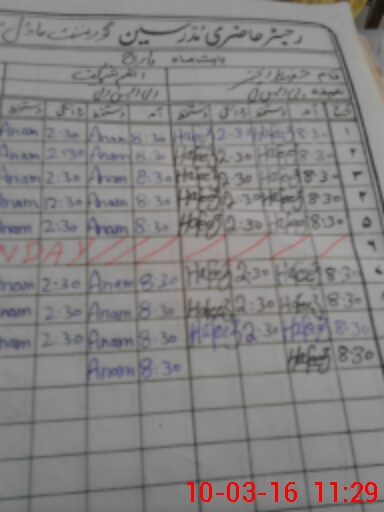 رجسٹر حاضری مدرسین گورنمنٹ ماڈل
بابت ماہ مارچ
نام حفیظ اختر انعم شوکت
عہدہ پی ایس ٹی
تاریخ آمد دستخط روانگی دستخط آمد دستخط روانگی دستخط
۱ 8:30 Hafeez 2:30 Hafeez 8:30 Anam 2:30 Anam
۲ 8:30 Hafeez 2:30 Hafeez 8:30 Anam 2:30 Anam
۳ 8:30 Hafeez 2:30 Hafeez 8:30 Anam 2:30 Anam
۴ 8:30 Hafeez 2:30 Hafeez 8:30 Anam 2:30 Anam
۵ 8:30 Hafeez 2:30 Hafeez 8:30 Anam 2:30 Anam
۶ NDAY
8:30 Hafeez 2:30 Hafeez 8:30 Anam 2:30 Anam
8:30 Hafeez 2:30 Hafeez 8:30 Anam 2:30 Anam
8:30 Hafeez 2:30 Hafeez 8:30 Anam 2:30 Anam
8:30 Hafeez 8:30 Anam
10-03-16 11:29